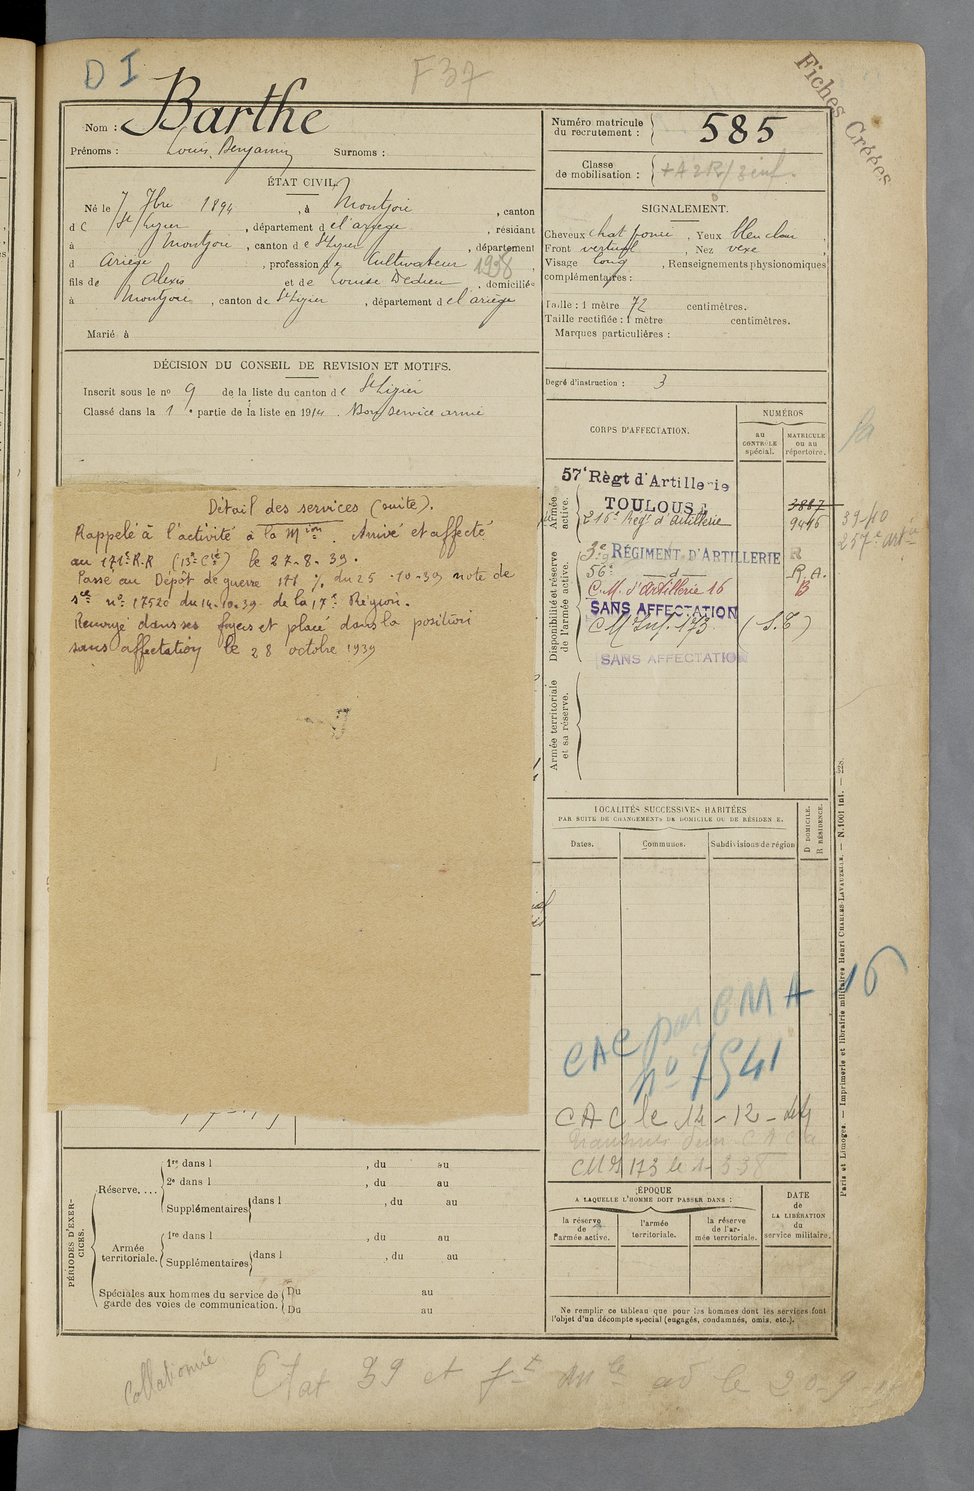 D I
F 37
Fiches Créées
Nom : Barthe
Prénoms : Louis, Benjamin Surnoms :
ÉTAT CIVIL.
Né le 7 7bre 1894, à Montjoie, canton
de St Lizier, département de l'ariège, résidant
à Montjoie, canton de St Lizier, département
d Ariège, profession de Cultivateur 1938
fils de Alexis et de Louise Dedieu, domiciliés
à Montjoie, canton de St Lizier, département de l'ariège
Marié à
DÉCISION DU CONSEIL DE REVISION ET MOTIFS.
Inscrit sous le no 9 de la liste du canton de St Lizier
Classé dans la 1e partie de la liste en 1914 Bon service armé
Détail des services (suite).
Rappelé à l'activité à la Mion. Arrivé et affecté
au 171e R.R (13e Cie) le 27-8-39.
Passé au Dépôt de guerre 171 % du 25-10-39 note de
sce no 17520 du 14-10-39 de la 17e Région.
Renvoyé dans ses foyers et placé dans la position
sans affectation le 28 octobre 1939
PÉRIODES D'EXERCICES.
Réserve....
1re dans l , du au
2e dans l , du au
Supplémentaires dans l , du au
Armée territoriale.
1re dans l , du au
Supplémentaires dans l , du au
Spéciales aux hommes du service de garde des voies de communication.
Du au
Du au
Numéro matricule du recrutement : 585
Classe de mobilisation :
SIGNALEMENT.
Cheveux chat foncé, Yeux bleu clair,
Front vertical, Nez vexe,
Visage long, Renseignements physionomiques
complémentaires :
Taille : 1 mètre 72 centimètres.
Taille rectifiée : 1 mètre centimètres.
Marques particulières :
Degré d'instruction : 3
CORPS D'AFFECTATION.
NUMÉROS
au CONTRÔLE spécial.
MATRICULE ou au répertoire.
Armée active.
57e Régt d'Artillerie
TOULOUSE
3887
216e Régt d'artillerie 9446
39-40
257e art
Disponibilité et réserve de l'armée active.
3e RÉGIMENT D'ARTILLERIE R
56e d R.A.
C.M. d'artillerie 16 B
SANS AFFECTATION
C M Inf. 173 (S.T)
SANS AFFECTATION
Armée territoriale et sa réserve.
LOCALITÉS SUCCESSIVES HABITÉES
PAR SUITE DE CHANGEMENTS DE DOMICILE OU DE RÉSIDENCE.
Dates.
Communes.
Subdivisions de région
D DOMICILE.
R RÉSIDENCE.
CAC par CMA 16
no 7541
CAC le 14-12-
ÉPOQUE
A LAQUELLE L'HOMME DOIT PASSER DANS :
la réserve de l'armée active.
l'armée territoriale.
la réserve de l'armée territoriale.
DATE de LA LIBÉRATION du service militaire.
Ne remplir ce tableau que pour les hommes dont les services font
l'objet d'un décompte spécial (engagés, condamnés, omis, etc.).
Paris et Limoges. — Imprimerie et librairie militaires Henri CHARLES-LAVAUZELLE. — N. 1001 int. — 228.
Collationné
Etat 39 et